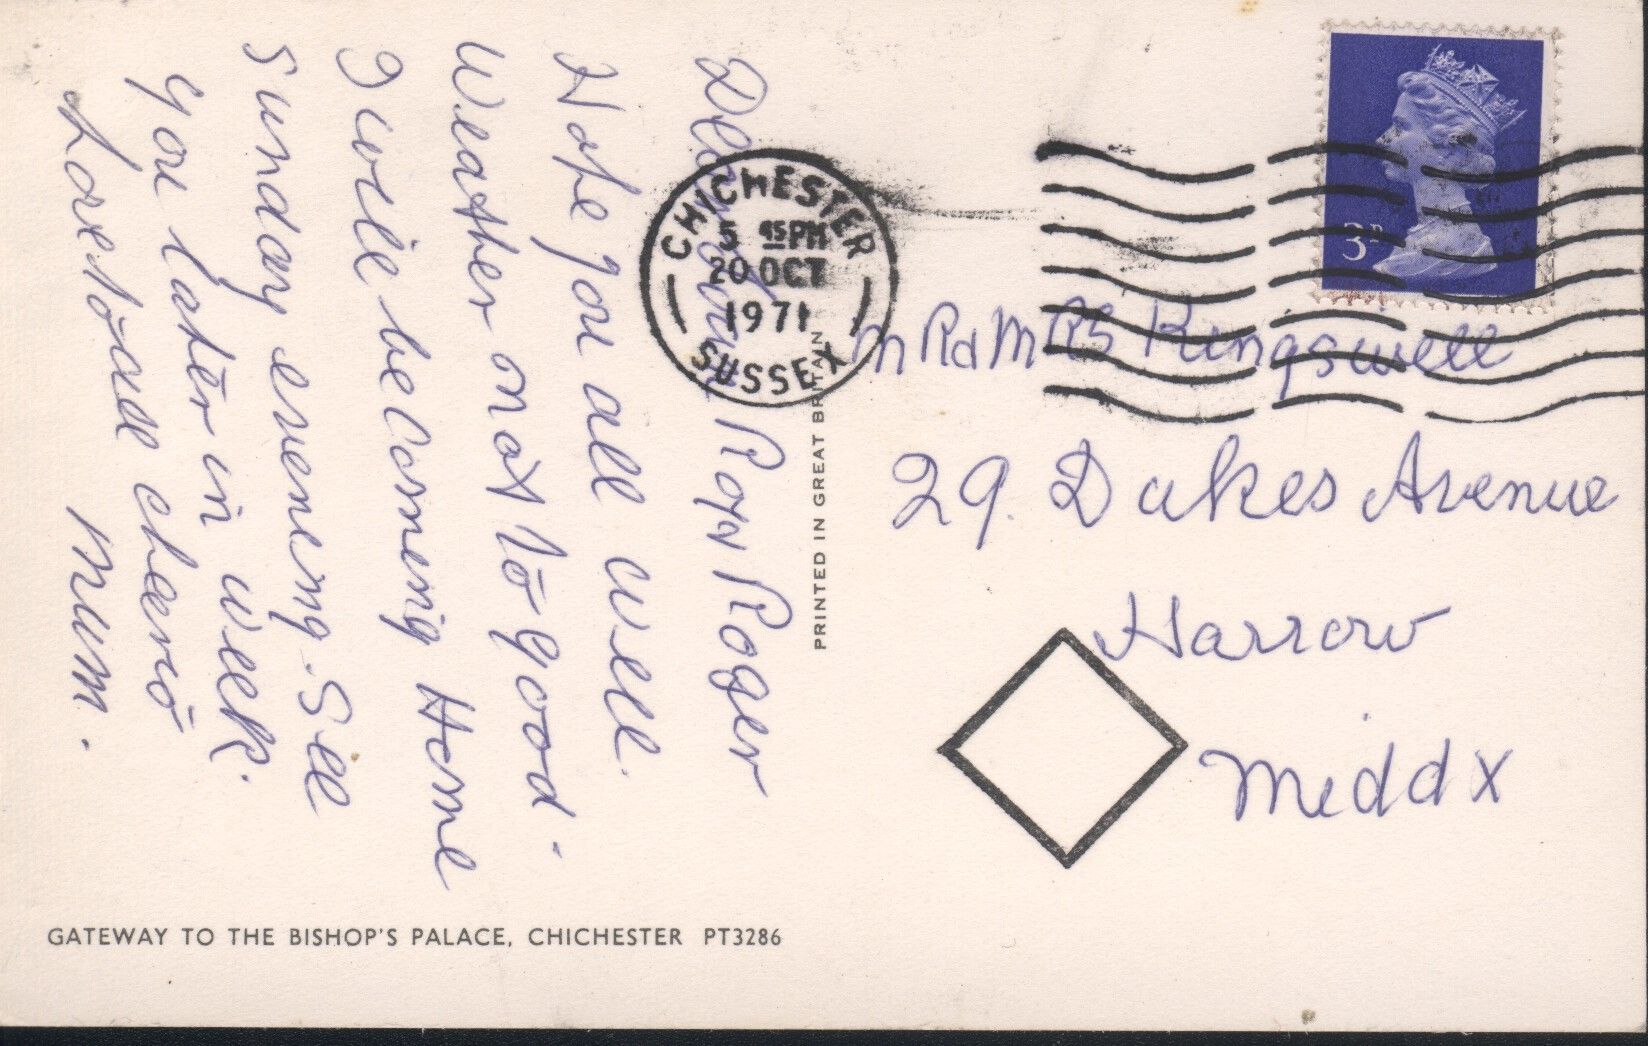 Dear Joan Roy & Roger
Hope you all well.
Weather not to good.
I will be Coming Home
Sunday evening. See
you later in week.
Love to all cheerio
Mum.
CHICHESTER
5 45PM
20 OCT
1971
SUSSEX
3D
MR & MRS Kingswell
29. Dukes Avenue
Harrow
Middx
PRINTED IN GREAT BRITAIN
GATEWAY TO THE BISHOP'S PALACE, CHICHESTER PT3286